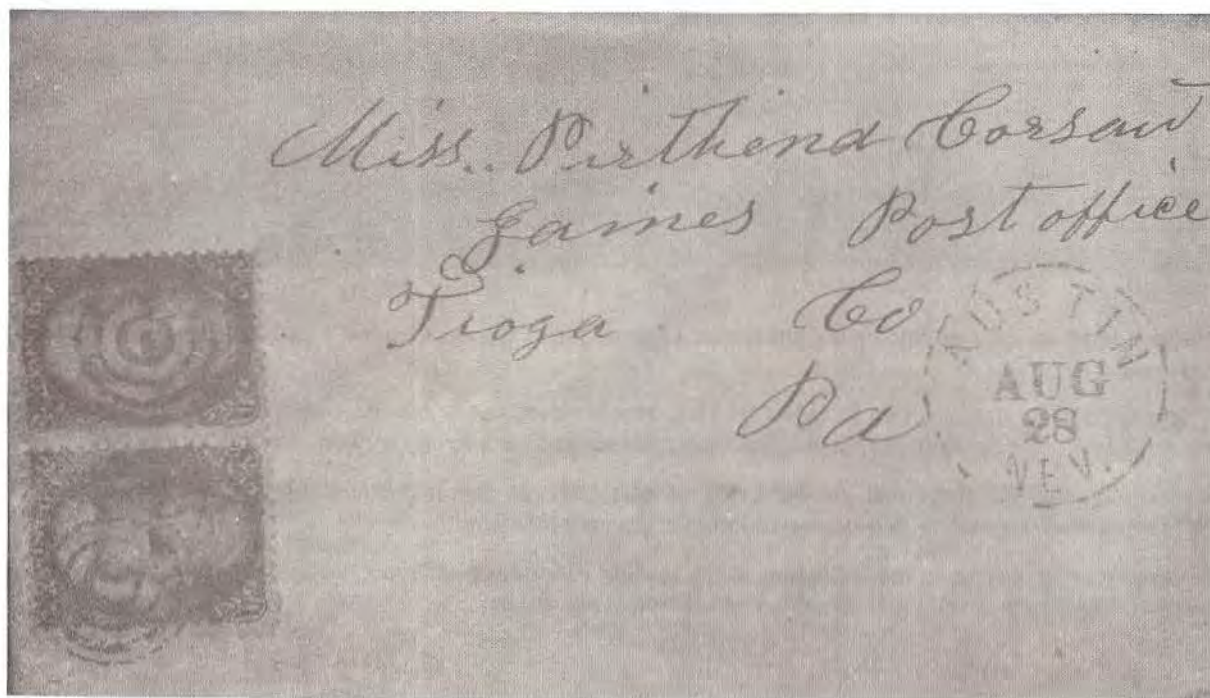 Miss. Pirthend Corsaut
Gaines Post office
Tioga Co
Pa
AUSTIN
AUG
28
NEV.